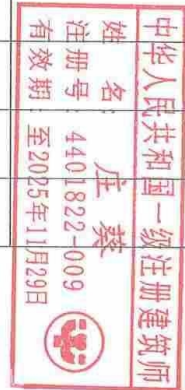 中华人民共和国一级注册建筑师
姓 名： 庄葵
注册号：4401822-009
有效期：至2025年11月29日